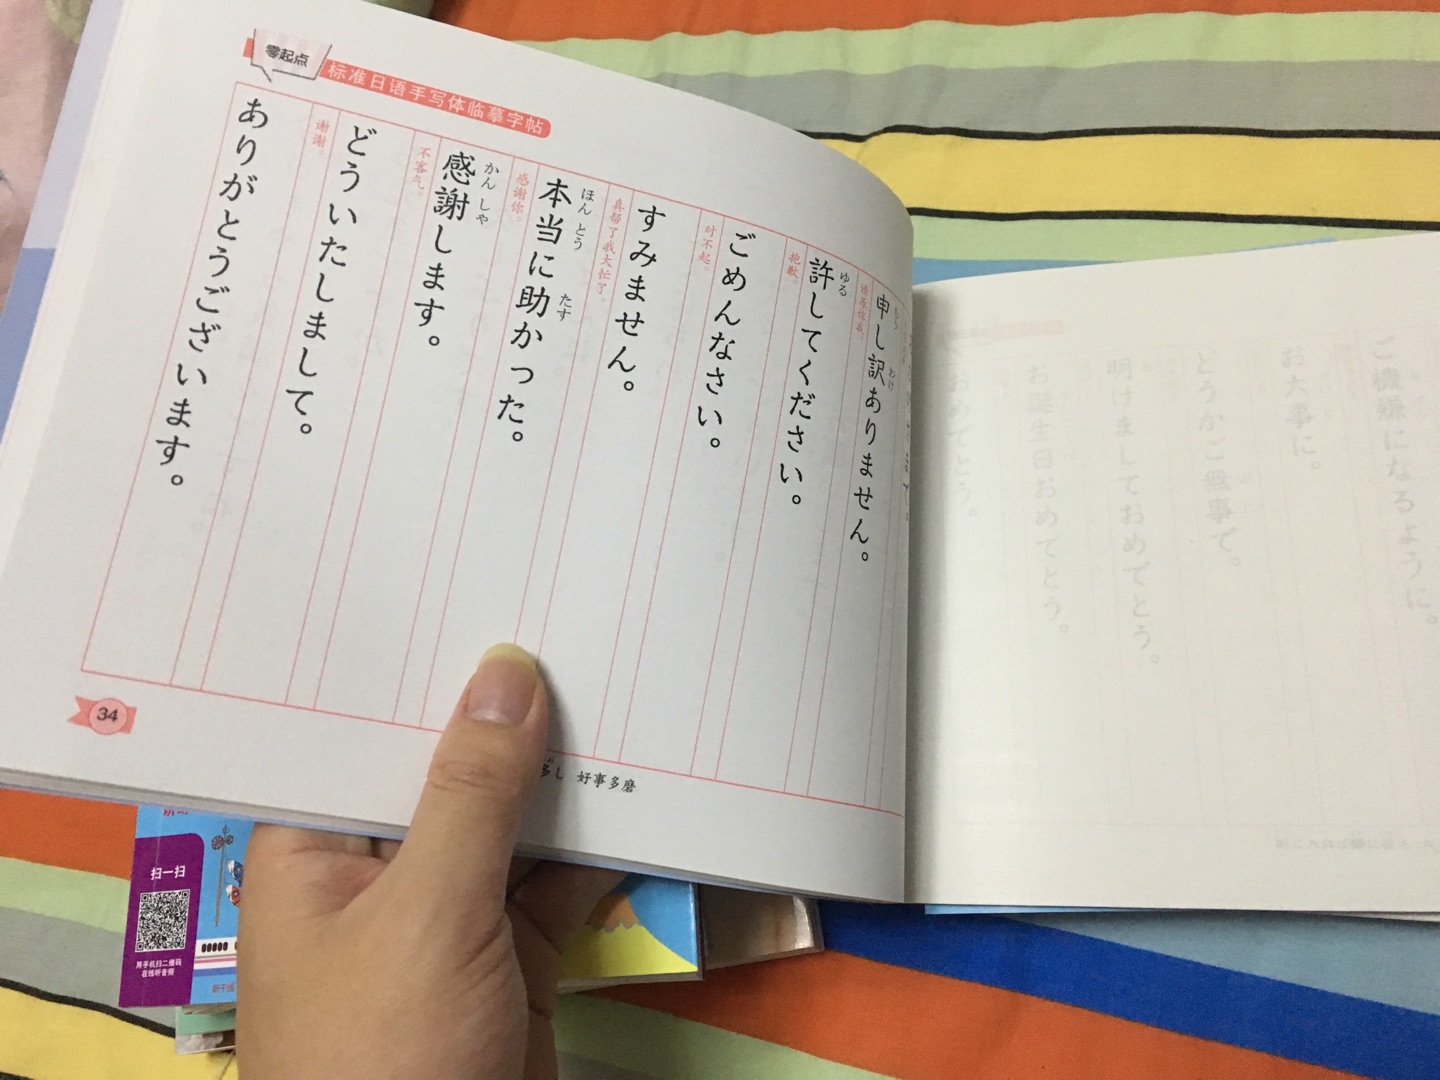 零起点
标准日语手写体临摹字帖
もう わけ
申し訳ありません。
请原谅我。
ゆる
許してください。
抱歉。
ごめんなさい。
对不起。
すみません。
真帮了我大忙了。
ほんとう たす
本当に助かった。
感谢你。
かんしゃ
感謝します。
不客气。
どういたしまして。
谢谢。
ありがとうございます。
34
多し 好事多磨
ご機嫌になるように。
お大事に。
どうかご無事で。
明けましておめでとう。
お誕生日おめでとう。
おめでとう。
扫一扫
用手机扫二维码
在线听音频